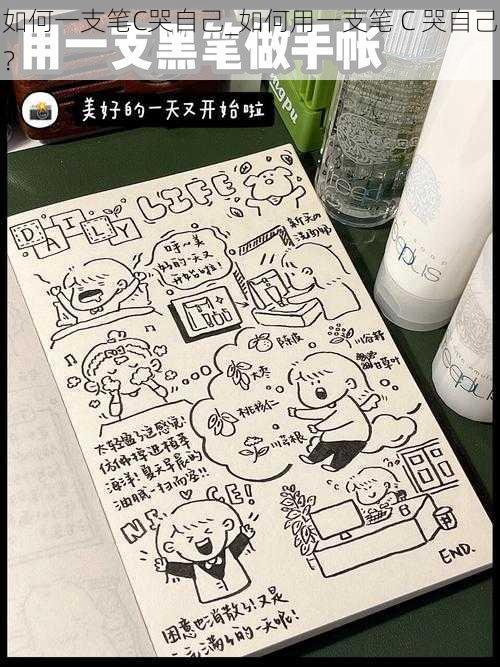 如何一支笔C哭自己_如何用一支笔 C 哭自己
?
用一支黑笔做手帐
美好的一天又开始啦
DAILY LIFE
呼~美
好的一天又
开始啦!
新天的
陈皮
大枣
桃核仁
川芎根
甘草叶
太轻盈了这感觉
仿佛撞进植萃
海洋!夏天早晨的
油腻一扫而空!!
NICE!
困意也消散了!又是
元满满的一天呢!
END.